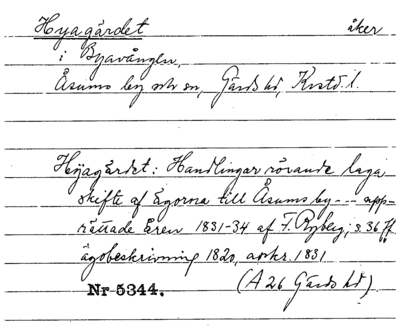 Hyagärdet åker
i Byavången,
Åsums by och sn, Gärds hd, Krstd. l.
Hÿagärdet: Handlingar rörande laga
skifte af Egorna till Åsums by --- upp-
rättade Åren 1831-34 af F. Ryberg, s. 36 ff.
ägobeskrivning 1820, avskr. 1831
Nr 5344. (A 26 Gärds hd)